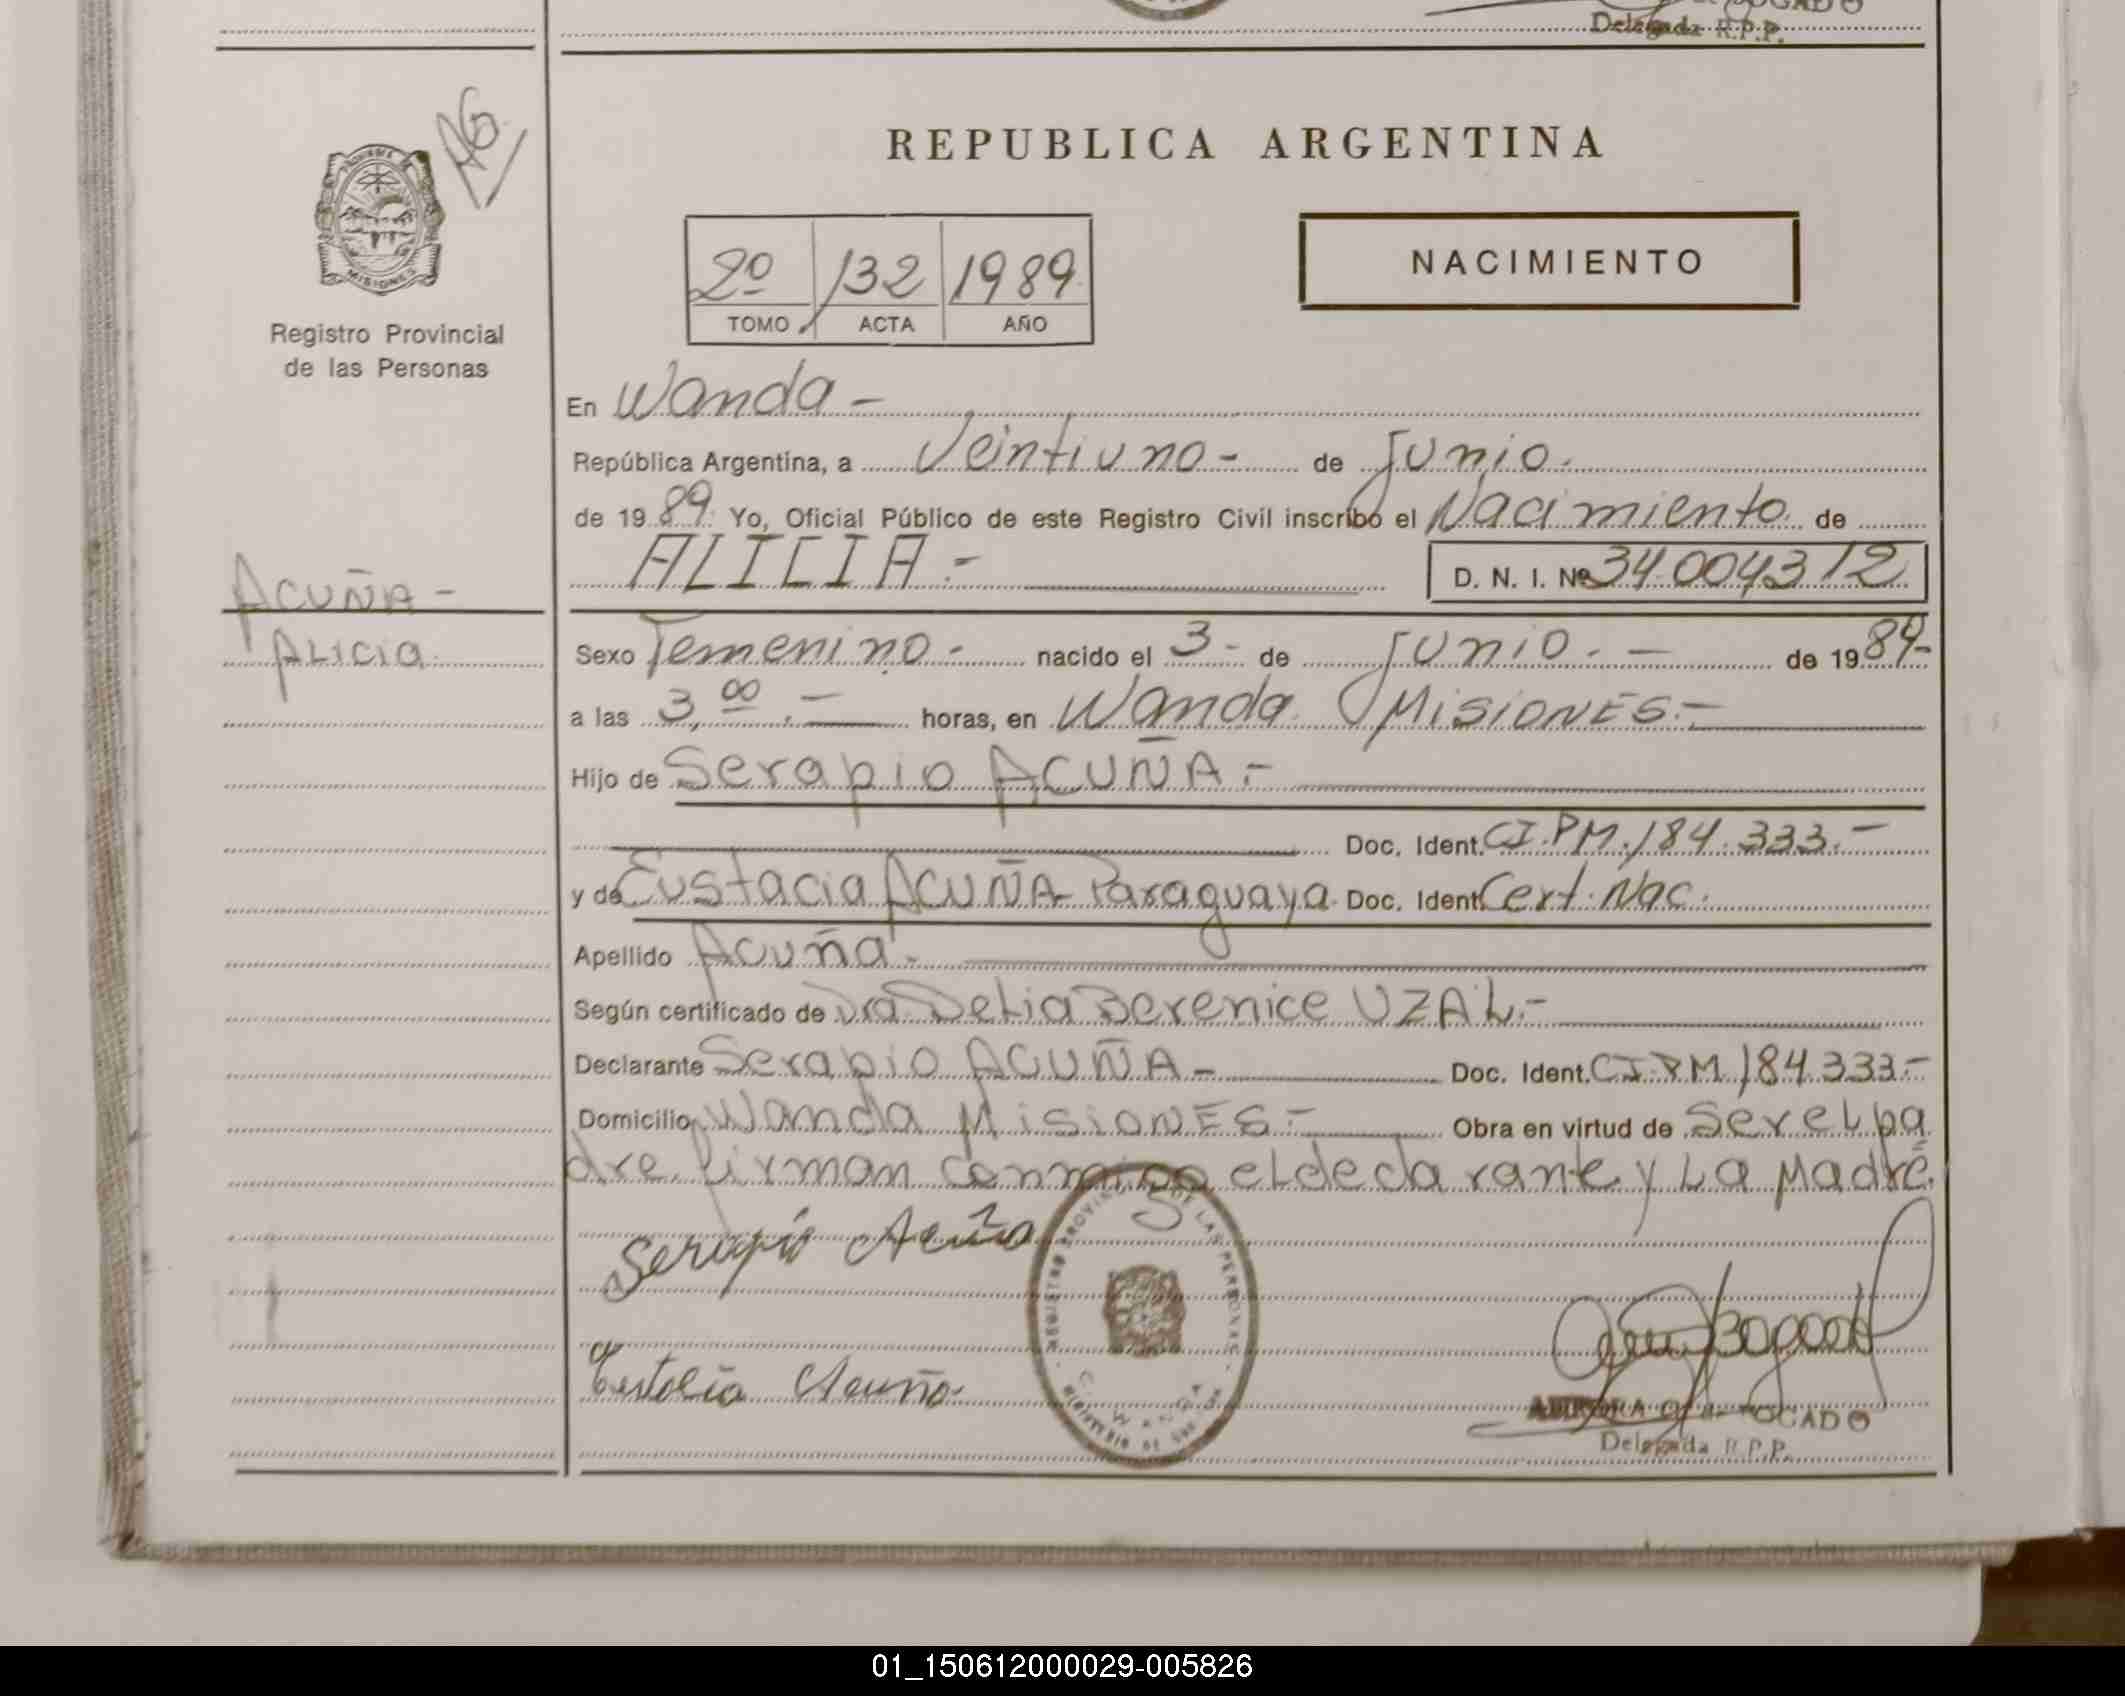 Delegada R.P.P.
REPUBLICA ARGENTINA
MISIONES
Registro Provincial
de las Personas
2º 132 1989
TOMO ACTA AÑO
NACIMIENTO
En Wanda -
República Argentina, a Veintiuno - de Junio.
de 1989. Yo, Oficial Público de este Registro Civil inscribo el Nacimiento de
ALICIA.- D. N. I. Nº 34.004312
ACUÑA -
ALICIA
Sexo Femenino - nacido el 3 - de Junio. - de 1989-
a las 3,00.- horas, en Wanda Misiones.-
Hijo de Serapio ACUÑA.-
Doc. Ident. CI.PM.184.333.-
y de Eustacia ACUÑA Paraguaya. Doc. Ident. Cert. Nac.
Apellido Acuña.
Según certificado de Dra Delia Berenice UZAL.-
Declarante Serapio ACUÑA - Doc. Ident. CI.PM 184.333-
Domicilio Wanda MisionES.- Obra en virtud de Ser el pa
dre. firman conmigo el declarante y La Madre.
Serapio Acuña
REGISTRO PROVINCIAL DE LAS PERSONAS
WANDA
Eustacia Acuña.
Delegada R.P.P.
01_150612000029-005826